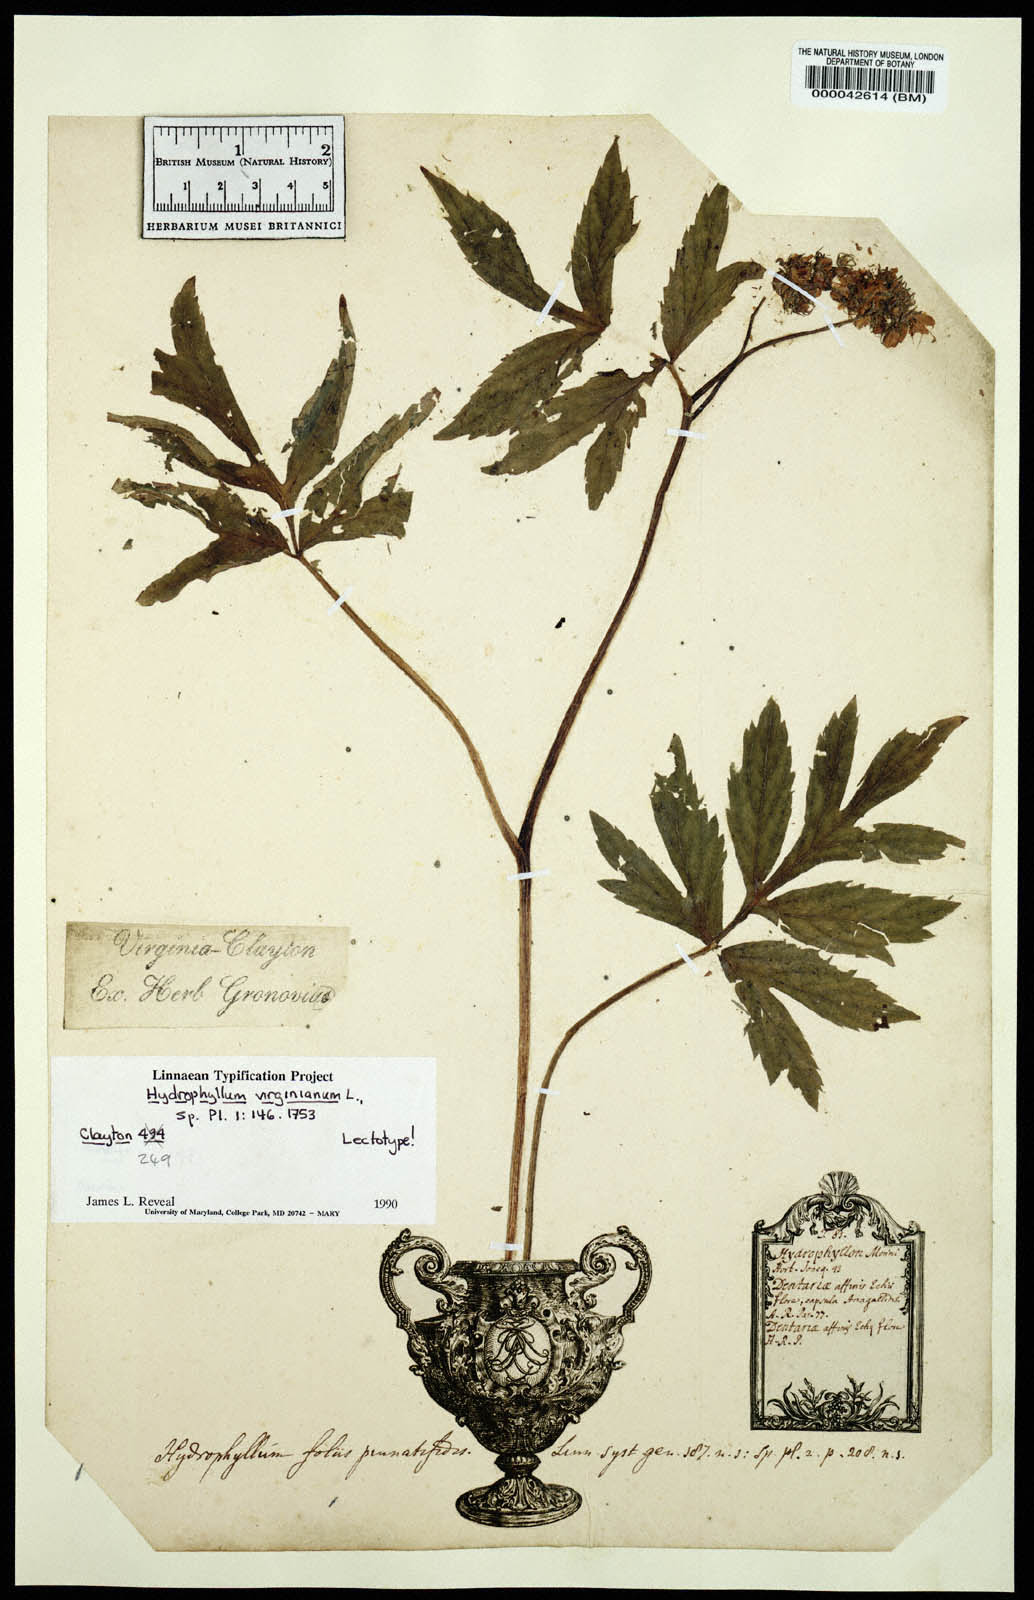 THE NATURAL HISTORY MUSEUM, LONDON
DEPARTMENT OF BOTANY
000042614 (BM)
1 2
BRITISH MUSEUM (NATURAL HISTORY)
1 2 3 4 5
HERBARIUM MUSEI BRITANNICI
Virginia-Clayton
Ex. Herb Gronovius
Linnaean Typification Project
Hydrophyllum virginianum L.,
Sp. Pl. 1: 146. 1753
Clayton 494
Lectotype!
249
James L. Reveal 1990
University of Maryland, College Park, MD 20742 – MARY
Hydrophyllon Morini
Hort. Joncq. 93
Dentariæ affinis Echii
flore, capsula Anagallidis
H. R. Par. 77.
Dentariæ affinis Echij flore
H. R. P.
Hydrophyllum foliis pinnatifidis. Linn Syst gen. 187. n. 1: Sp. pl. 2. p. 208. n. 1.